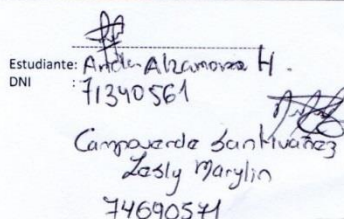 Estudiante: Ander Alzamora H.
DNI : 71340561
Campoverde Santivañez
Lesly Marylin
74690571